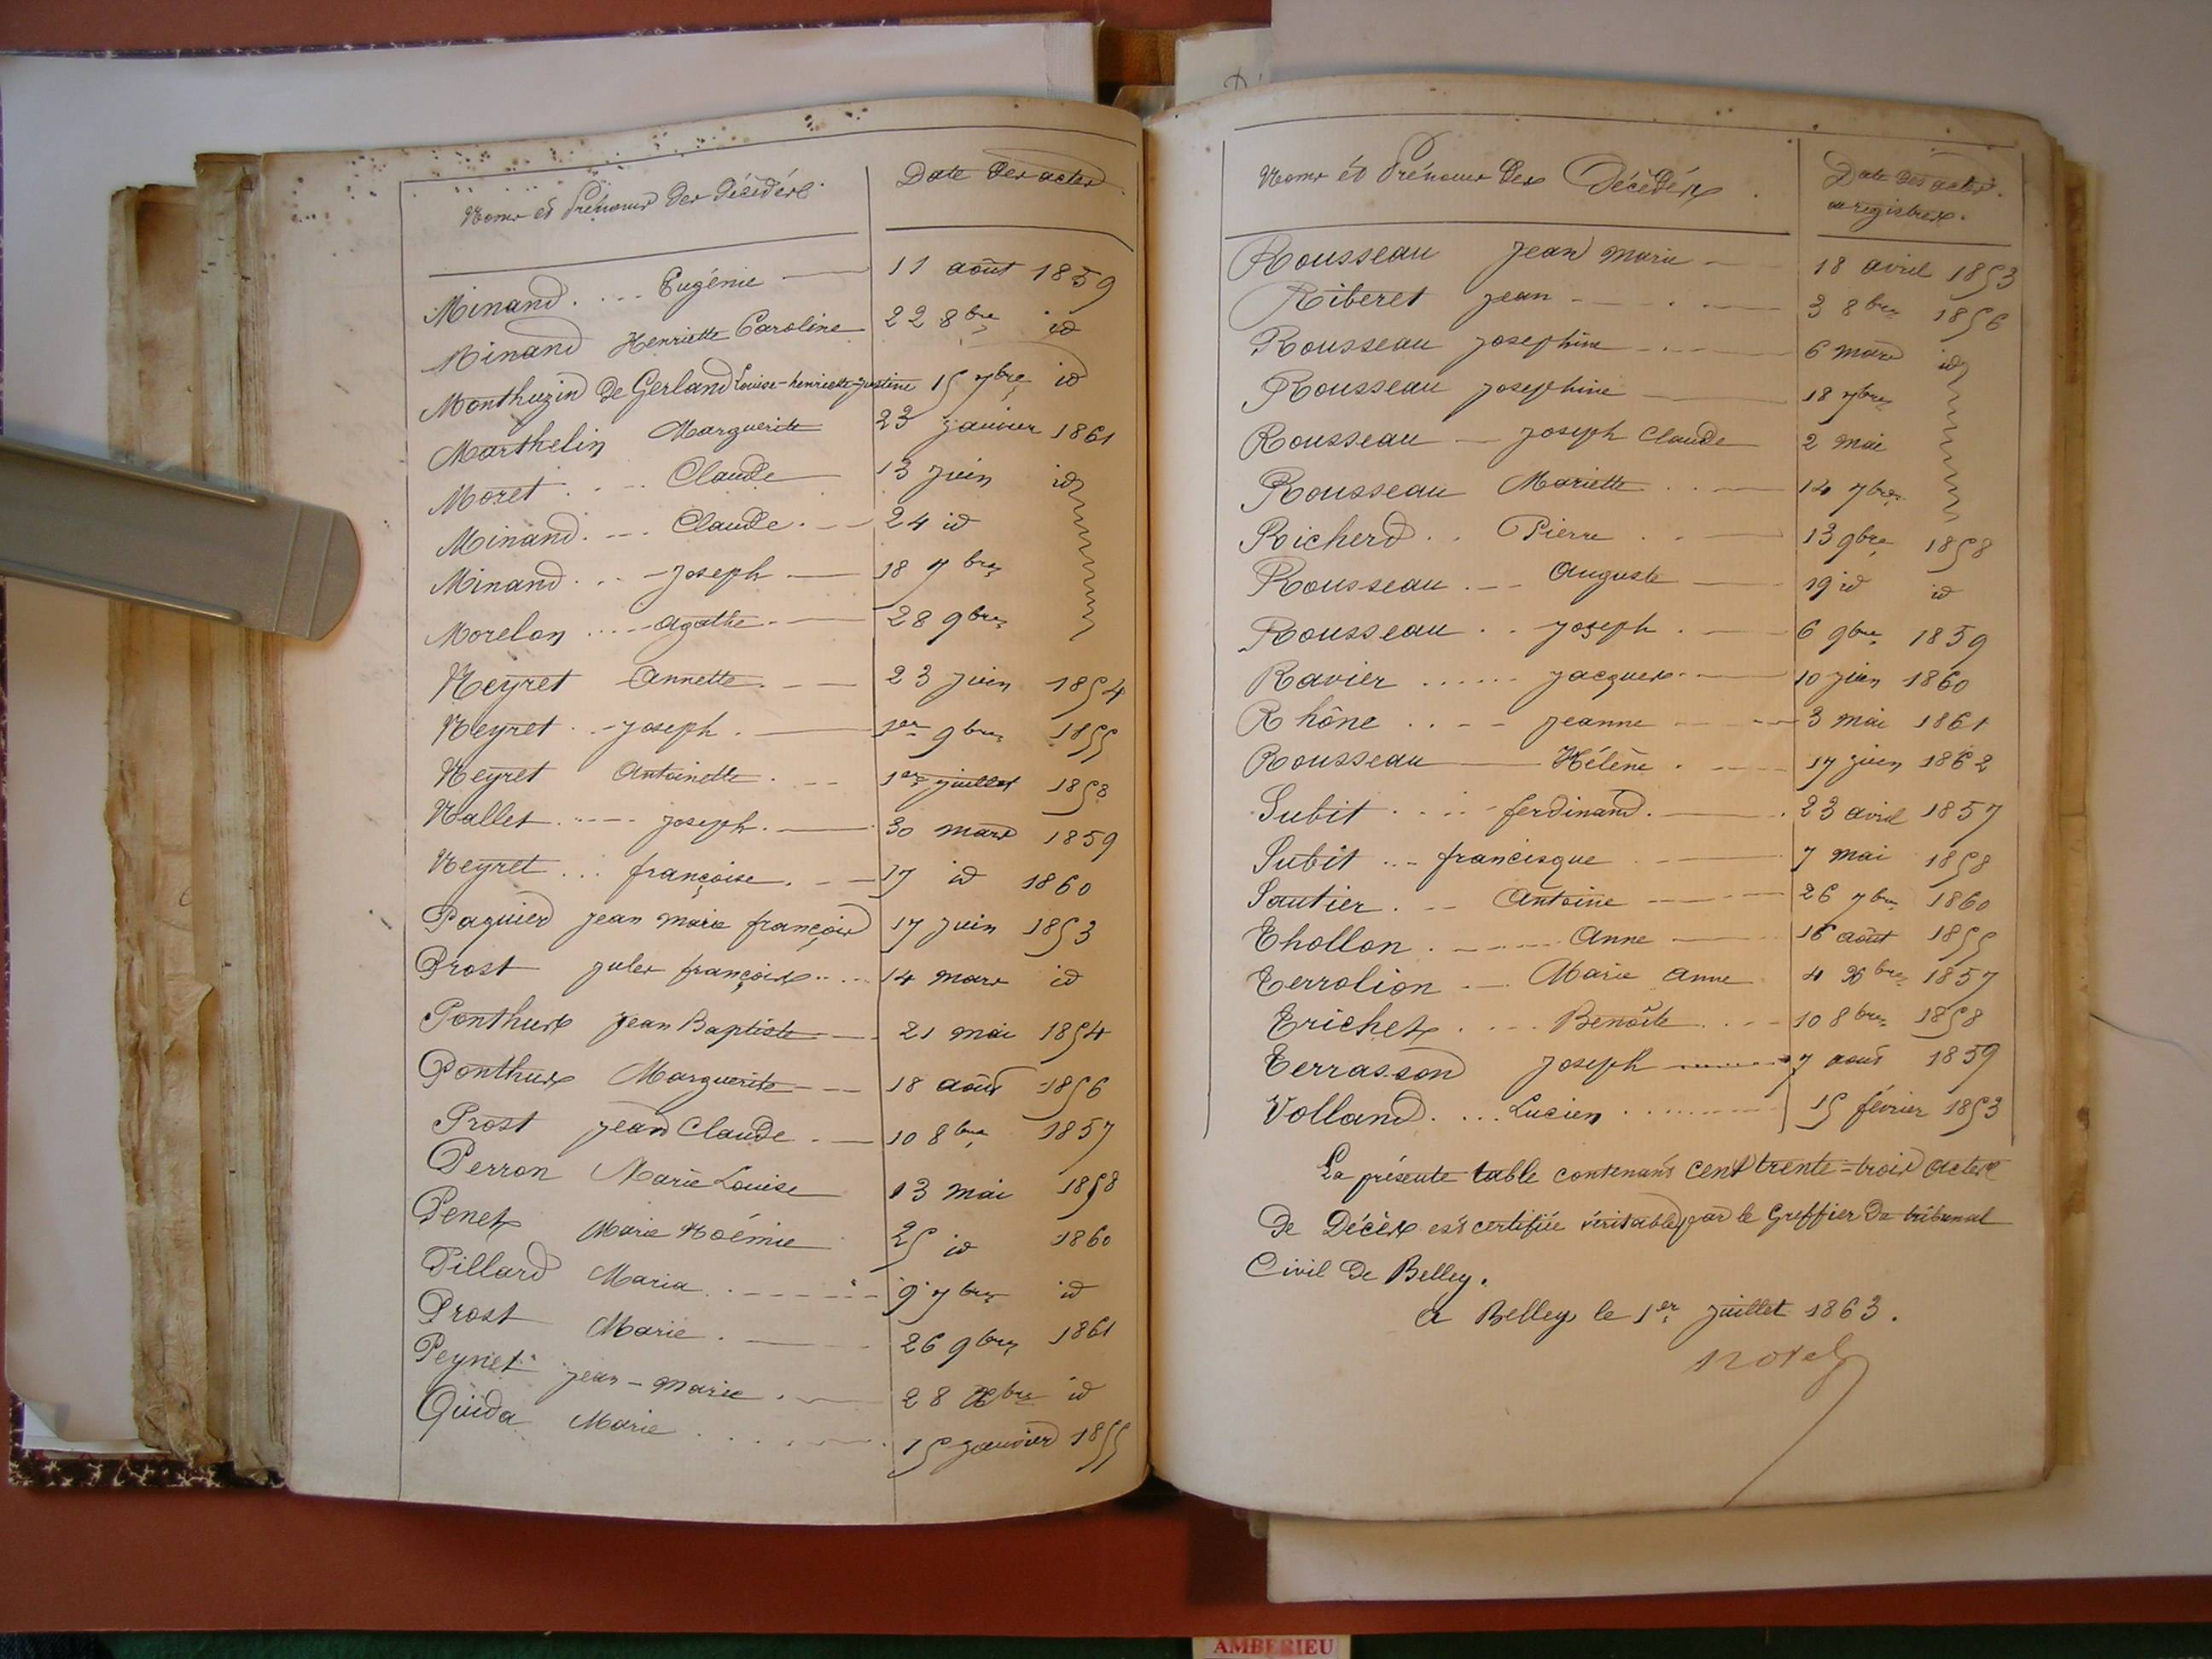 Noms et Prénoms des décédés
Date des actes
Minand Eugénie 11 août 1859
Minand Henriette Caroline 22 8bre id
Monthuzin de Gerland Louise-henriette-justine 15 7bre id
Marthelin Marguerite 23 janvier 1861
Moret Claude 13 juin id
Minand Claude 24 id
Minand Joseph 18 7bre
Morelon agathe 28 9bre
Neyret Annette 23 juin 1854
Neyret Joseph 1er 9bre 1855
Neyret Antoinette 1er juillet 1858
Nallet Joseph 30 mars 1859
Neyret françoise 17 id 1860
Paquier jean marie françois 17 juin 1853
Prost jules françois 14 mars id
Ponthus Jean Baptiste 21 mai 1854
Ponthus Marguerite 18 août 1856
Prost jean Claude 10 8bre 1857
Perron Marie Louise 13 mai 1858
Penet Marie Noémie 25 id 1860
Pillard Maria 9 7bre id
Prost Marie 26 9bre 1861
Peynet jean-marie 28 Xbre id
Quida Marie 15 janvier 1855
Noms et Prénoms des Décédés
Date des actes
au registres.
Rousseau Jean marie 18 avril 1853
Riberet jean 3 8bre 1856
Rousseau Josephine 6 mars id
Rousseau Josephine 18 7bre
Rousseau Joseph Claude 2 mai
Rousseau Mariette 14 7bre
Richerd Pierre 13 9bre 1858
Rousseau Auguste 19 id id
Rousseau Joseph 6 9bre 1859
Ravier Jacques 10 juin 1860
Rhône jeanne 3 mai 1861
Rousseau Hélène 17 juin 1862
Subit ferdinand 23 avril 1857
Subit francisque 7 mai 1858
Sautier Antoine 26 7bre 1860
Thollon Anne 16 août 1855
Terrolion Marie Anne 4 Xbre 1857
Trichet Benoîte 10 8bre 1858
Terrasson Joseph 7 août 1859
Volland Lucien 15 février 1853
La présente table contenant cent trente-trois actes
de Décès est certifiée véritable par le Greffier du tribunal
Civil de Belley.
a Belley le 1er juillet 1863.
AMBERIEU